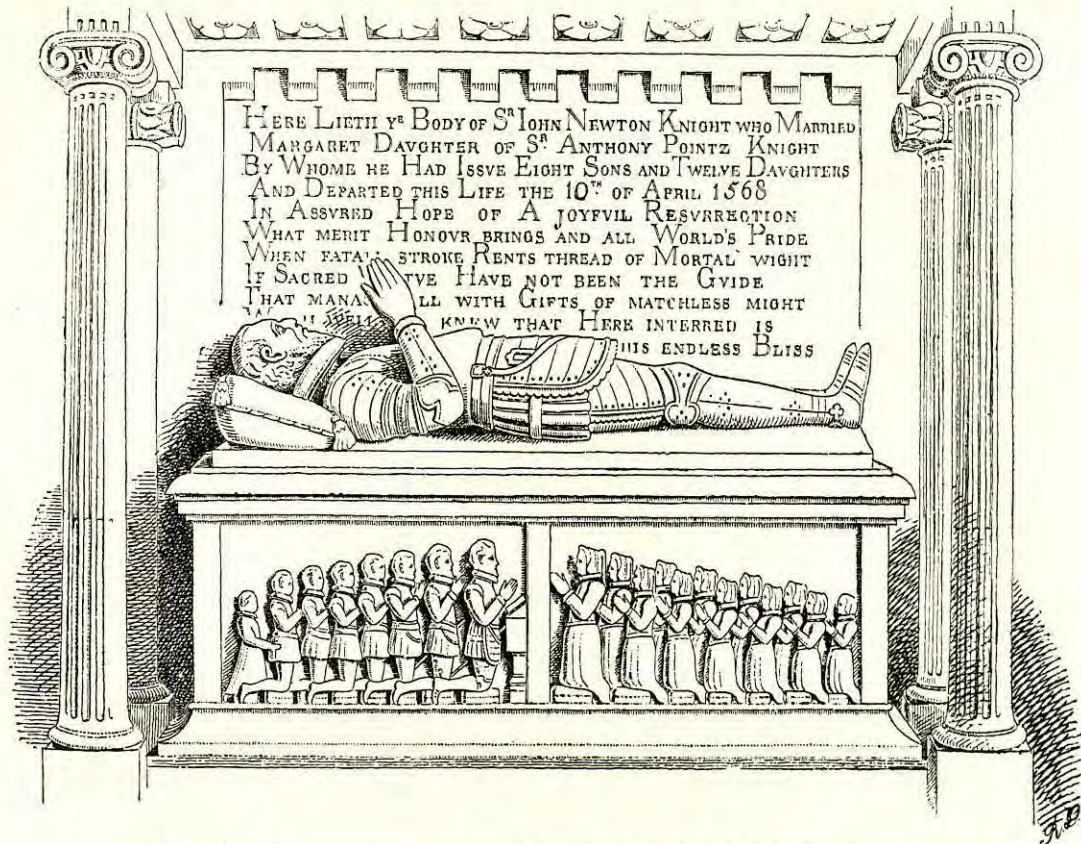 HERE LIETH Yᴱ BODY OF Sᴿ IOHN NEWTON KNIGHT WHO MARRIED
MARGARET DAVGHTER OF Sᴿ ANTHONY POINTZ KNIGHT
BY WHOME HE HAD ISSVE EIGHT SONS AND TWELVE DAVGHTERS
AND DEPARTED THIS LIFE THE 10ᵀᴴ OF APRIL 1568
IN ASSVRED HOPE OF A JOYFVLL RESVRRECTION
WHAT MERIT HONOVR BRINGS AND ALL WORLD'S PRIDE
WHEN FATALL STROKE RENTS THREAD OF MORTAL WIGHT
IF SACRED VE HAVE NOT BEEN THE GVIDE
THAT MANA LL WITH GIFTS OF MATCHLESS MIGHT
KNEW THAT HERE INTERRED IS
HIS ENDLESS BLISS
R.P.